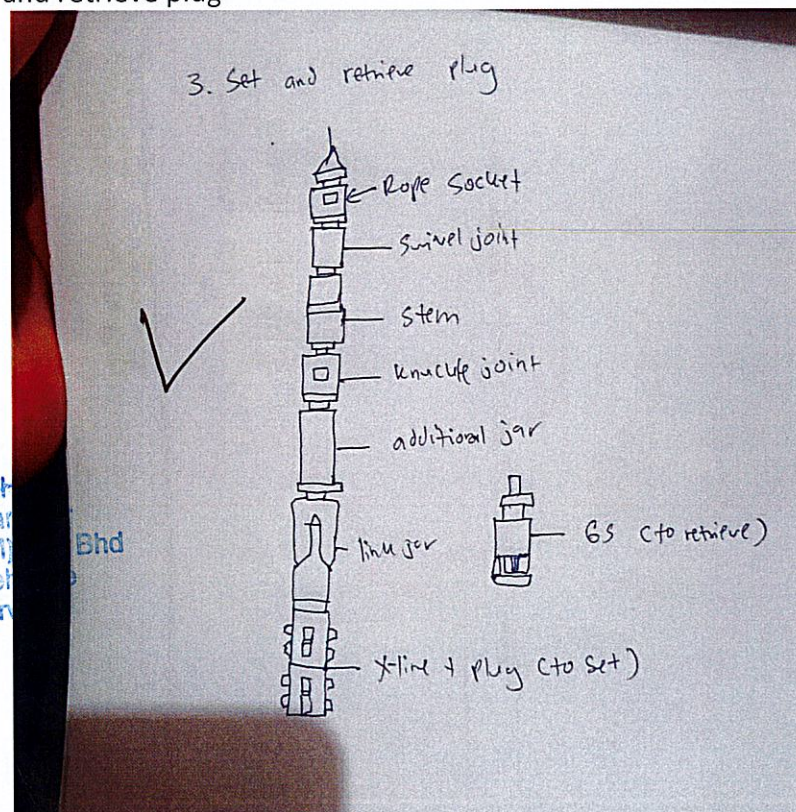 and retrieve plug
3. Set and retrieve plug
Rope Socket
Swivel joint
Stem
knuckle joint
additional jar
link jar
GS (to retrieve)
X-line + plug (to set)
Bhd